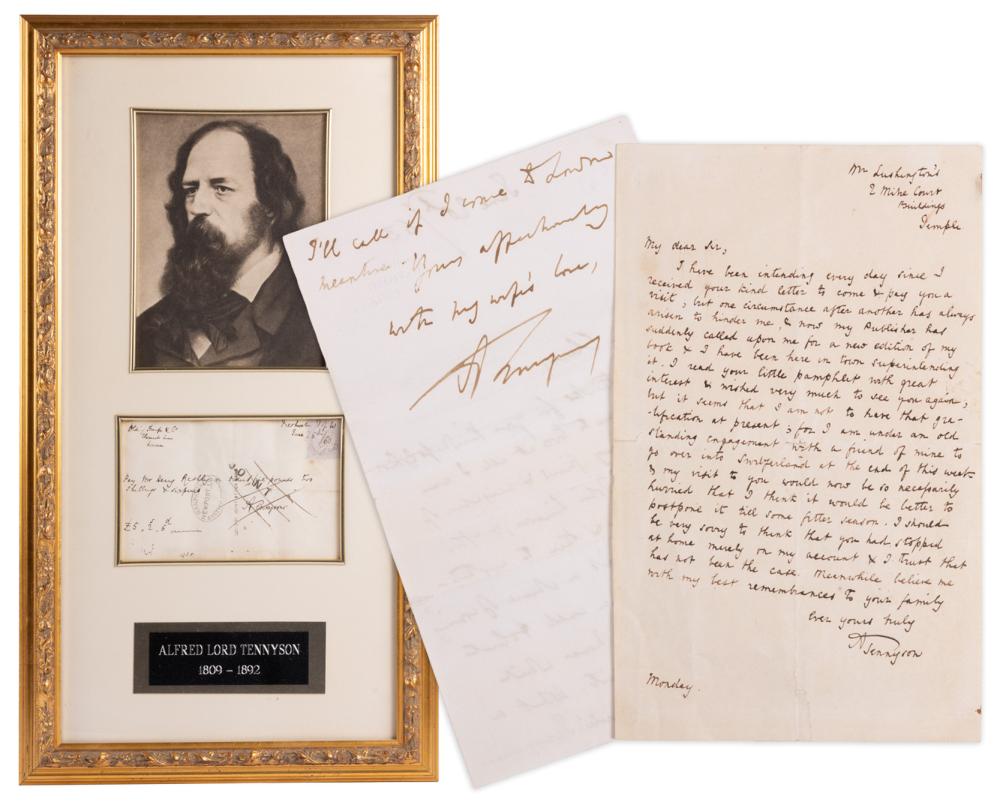 Pay Mr Henry
Shillings & sixpence
A Tennyson
£5. 2. 6
ALFRED LORD TENNYSON
1809 – 1892
I'll call if I come to London
meantime Yours affectionately
with my wife's love,
A Tennyson
Mr Lushington's
2 Mitre Court
Buildings
Temple
My dear Sir,
I have been intending every day since I
received your kind letter to come & pay you a
visit; but one circumstance after another has always
arisen to hinder me, & now my Publisher has
suddenly called upon me for a new edition of my
book & I have been here in town superintending
it. I read your little pamphlet with great
interest & wished very much to see you again;
but it seems that I am not to have that gra-
-tification at present; for I am under an old
standing engagement with a friend of mine to
go over into Switzerland at the end of this week
& my visit to you would now be so necessarily
hurried that I think it would be better to
postpone it till some fitter season. I should
be very sorry to think that you had stopped
at home merely on my account & I trust that
has not been the case. Meanwhile believe me
with my best remembrances to your family
Ever yours truly
A Tennyson
Monday.